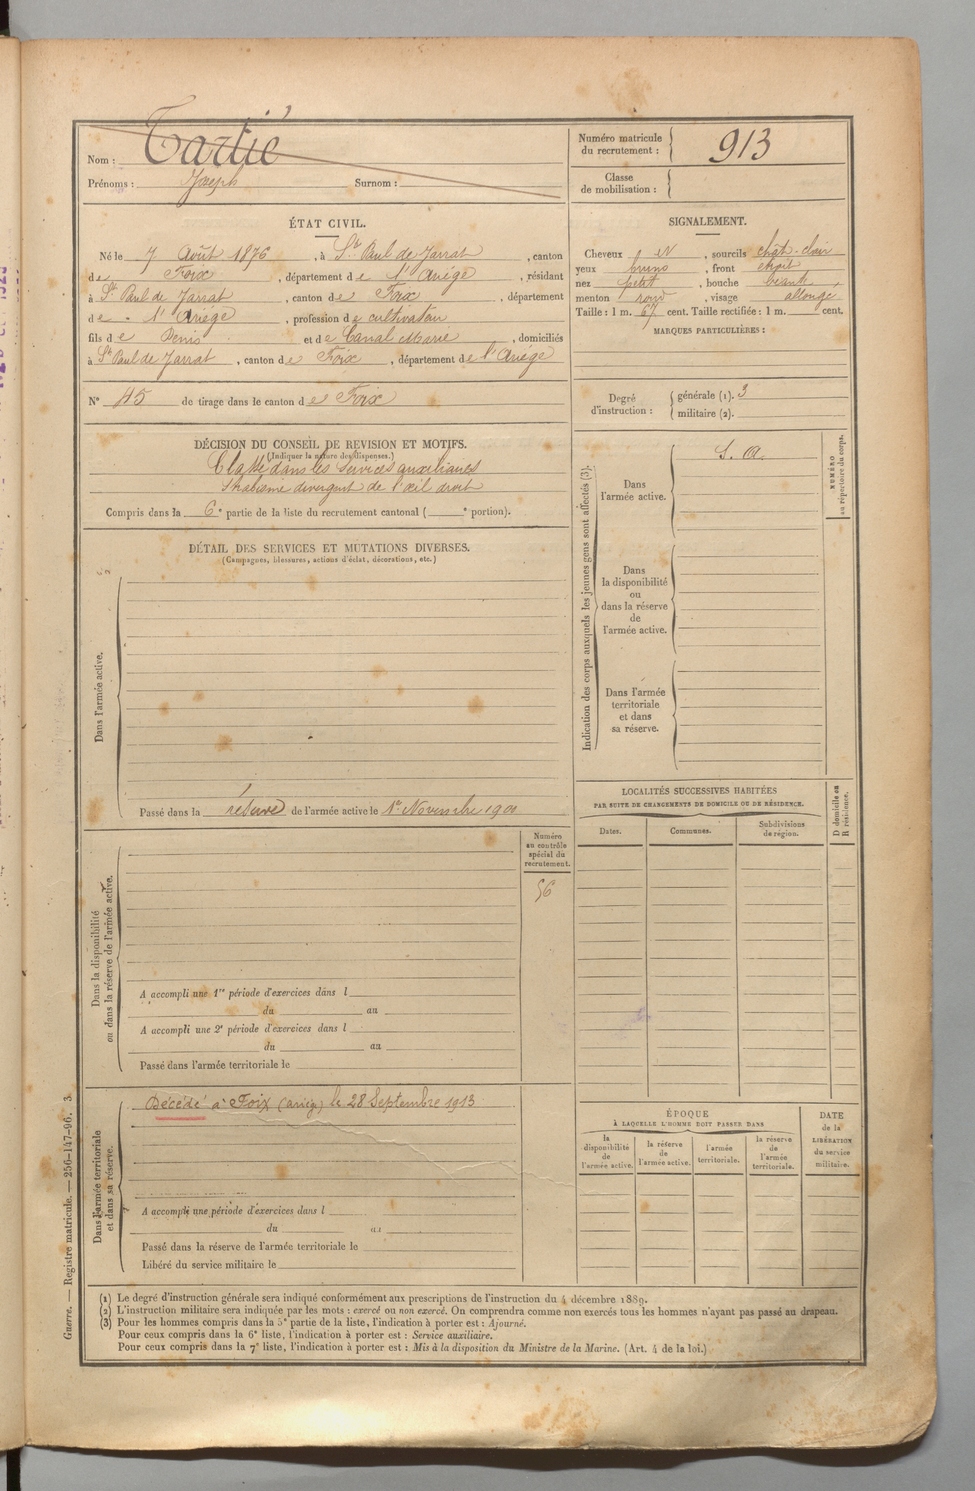 Nom : Tartié
Prénoms : Joseph Surnom :
Numéro matricule
du recrutement : 913
Classe
de mobilisation :
ÉTAT CIVIL.
Né le 7 Août 1876, à St Paul de Jarrat, canton
de Foix, département de l'Ariège, résidant
à St Paul de Jarrat, canton de Foix, département
de l'Ariège, profession de cultivateur
fils de Denis et de Canal Marie, domiciliés
à St Paul de Jarrat, canton de Foix, département de l'Ariège
N° 45 de tirage dans le canton de Foix
SIGNALEMENT.
Cheveux et, sourcils chât-clair
yeux bruns, front étroit
nez petit, bouche béante
menton rond, visage allongé
Taille : 1 m. 67 cent. Taille rectifiée : 1 m. cent.
MARQUES PARTICULIÈRES :
Degré
d'instruction :
générale (1). 3
militaire (2).
DÉCISION DU CONSEIL DE REVISION ET MOTIFS.
(Indiquer la nature des dispenses.)
Classé dans les services auxiliaires
Strabisme divergent de l'œil droit
Compris dans la 6e partie de la liste du recrutement cantonal ( e portion).
DÉTAIL DES SERVICES ET MUTATIONS DIVERSES.
(Campagnes, blessures, actions d'éclat, décorations, etc.)
Dans l'armée active.
Passé dans la réserve de l'armée active le 1er Novembre 1900
Numéro
au contrôle
spécial du
recrutement.
56
Dans la disponibilité
ou dans la réserve de l'armée active.
A accompli une 1re période d'exercices dans l
du au
A accompli une 2e période d'exercices dans l
du au
Passé dans l'armée territoriale le
Dans l'armée territoriale
et dans sa réserve.
Décédé à Foix (Arièg) le 28 Septembre 1913
A accompli une période d'exercices dans l
du au
Passé dans la réserve de l'armée territoriale le
Libéré du service militaire le
Indication des corps auxquels les jeunes gens sont affectés (3).
NUMÉRO
au répertoire du corps.
Dans
l'armée active.
S. A.
Dans
la disponibilité
ou
dans la réserve
de
l'armée active.
Dans l'armée
territoriale
et dans
sa réserve.
LOCALITÉS SUCCESSIVES HABITÉES
PAR SUITE DE CHANGEMENTS DE DOMICILE OU DE RÉSIDENCE.
Dates.
Communes.
Subdivisions
de région.
D domicile ou
R résidence.
ÉPOQUE
À LAQUELLE L'HOMME DOIT PASSER DANS
la
disponibilité
de
l'armée active.
la réserve
de
l'armée active.
l'armée
territoriale.
la réserve
de
l'armée
territoriale.
DATE
de la
LIBÉRATION
du service
militaire.
(1) Le degré d'instruction générale sera indiqué conformément aux prescriptions de l'instruction du 4 décembre 1889.
(2) L'instruction militaire sera indiquée par les mots : exercé ou non exercé. On comprendra comme non exercés tous les hommes n'ayant pas passé au drapeau.
(3) Pour les hommes compris dans la 5e partie de la liste, l'indication à porter est : Ajourné.
Pour ceux compris dans la 6e liste, l'indication à porter est : Service auxiliaire.
Pour ceux compris dans la 7e liste, l'indication à porter est : Mis à la disposition du Ministre de la Marine. (Art. 4 de la loi.)
Guerre. — Registre matricule. — 256-147-96. 3.